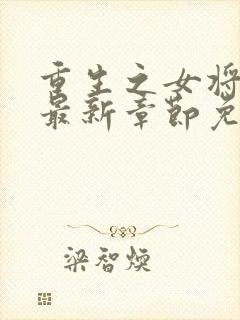 重生之女将
最新章节免
梁智煐